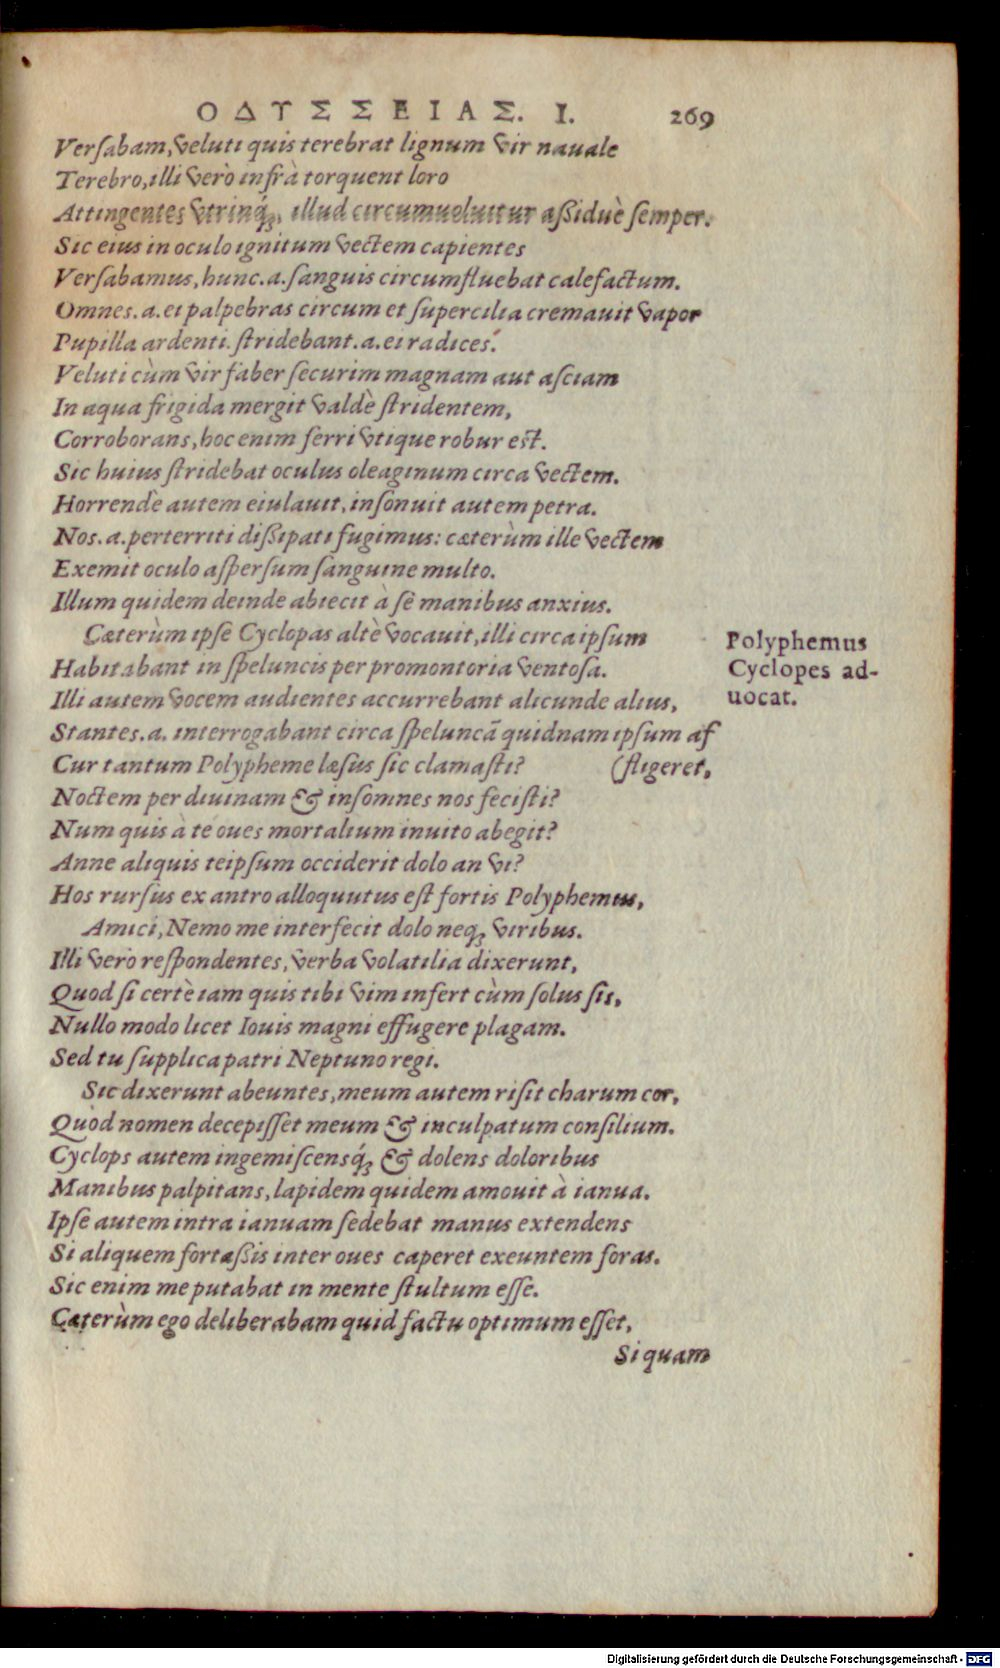 ΟΔΥΣΣΕΙΑΣ. Ι. 269
Verſabam, veluti quis terebrat lignum vir nauale
Terebro, illi verò infrà torquent loro
Attingentes vtrinq́;, illud circumueluitur aßiduè ſemper.
Sic eius in oculo ignitum vectem capientes
Verſabamus, hunc.a.ſanguis circumfluebat calefactum.
Omnes.a.ei palpebras circum et ſupercilia cremauit vapor
Pupilla ardenti. ſtridebant.a.ei radices.
Veluti cùm vir faber ſecurim magnam aut aſciam
In aqua frigida mergit valdè ſtridentem,
Corroborans, hoc enim ferri vtique robur eſt.
Sic huius ſtridebat oculus oleaginum circa vectem.
Horrendè autem eiulauit, inſonuit autem petra.
Nos.a.perterriti dißipati fugimus: cæterùm ille vectem
Exemit oculo aſperſum ſanguine multo.
Illum quidem deinde abiecit à ſè manibus anxius.
Cæterùm ipſe Cyclopas altè vocauit, illi circa ipſum
Habitabant in ſpeluncis per promontoria ventoſa.
Illi autem vocem audientes accurrebant alicunde alius,
Stantes.a. interrogabant circa ſpeluncã quidnam ipſum af
Cur tantum Polypheme læſus ſic clamaſti? (fligeret,
Noctem per diuinam & inſomnes nos feciſti?
Num quis à te oues mortalium inuito abegit?
Anne aliquis teipſum occiderit dolo an vi?
Hos rurſus ex antro alloquutus eſt fortis Polyphemus,
Amici, Nemo me interfecit dolo neq; viribus.
Illi vero reſpondentes, verba volatilia dixerunt,
Quod ſi certè iam quis tibi vim infert cùm ſolus ſis,
Nullo modo licet Iouis magni effugere plagam.
Sed tu ſupplica patri Neptuno regi.
Sic dixerunt abeuntes, meum autem riſit charum cor,
Quòd nomen decepiſſet meum & inculpatum conſilium.
Cyclops autem ingemiſcensq́; & dolens doloribus
Manibus palpitans, lapidem quidem amouit à ianua.
Ipſe autem intra ianuam ſedebat manus extendens
Si aliquem fortaßis inter oues caperet exeuntem foras.
Sic enim me putabat in mente ſtultum eſſe.
Cæterùm ego deliberabam quid factu optimum eſſet,
Si quam
Polyphemus
Cyclopes ad-
uocat.
Digitalisierung gefördert durch die Deutsche Forschungsgemeinschaft - DFG